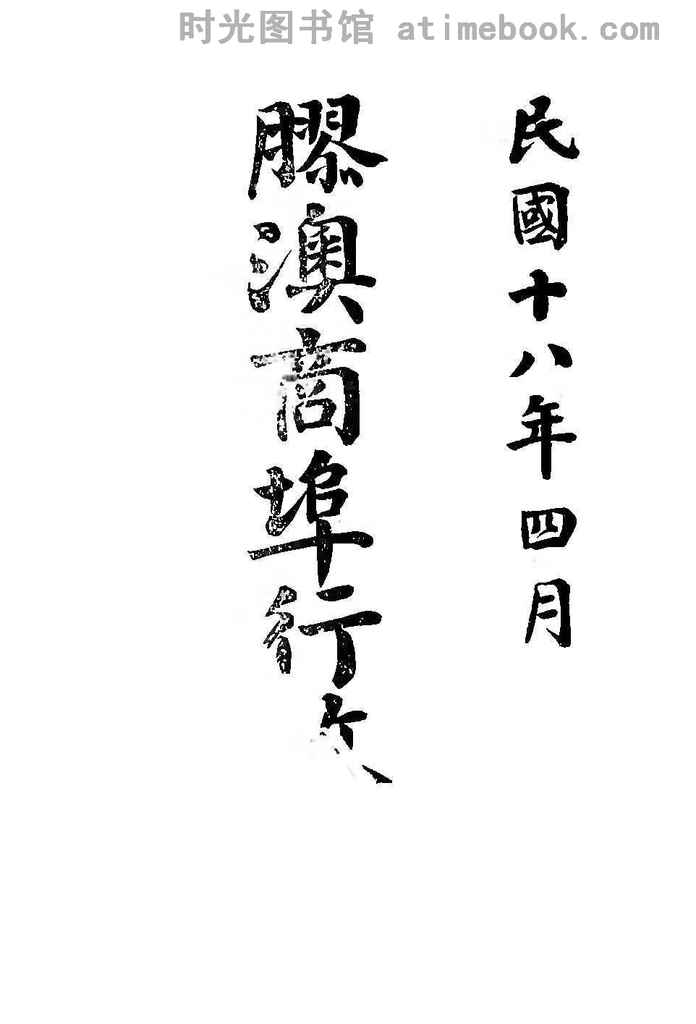 时光图书馆 atimebook.com
民國十八年四月
膠澳商埠行